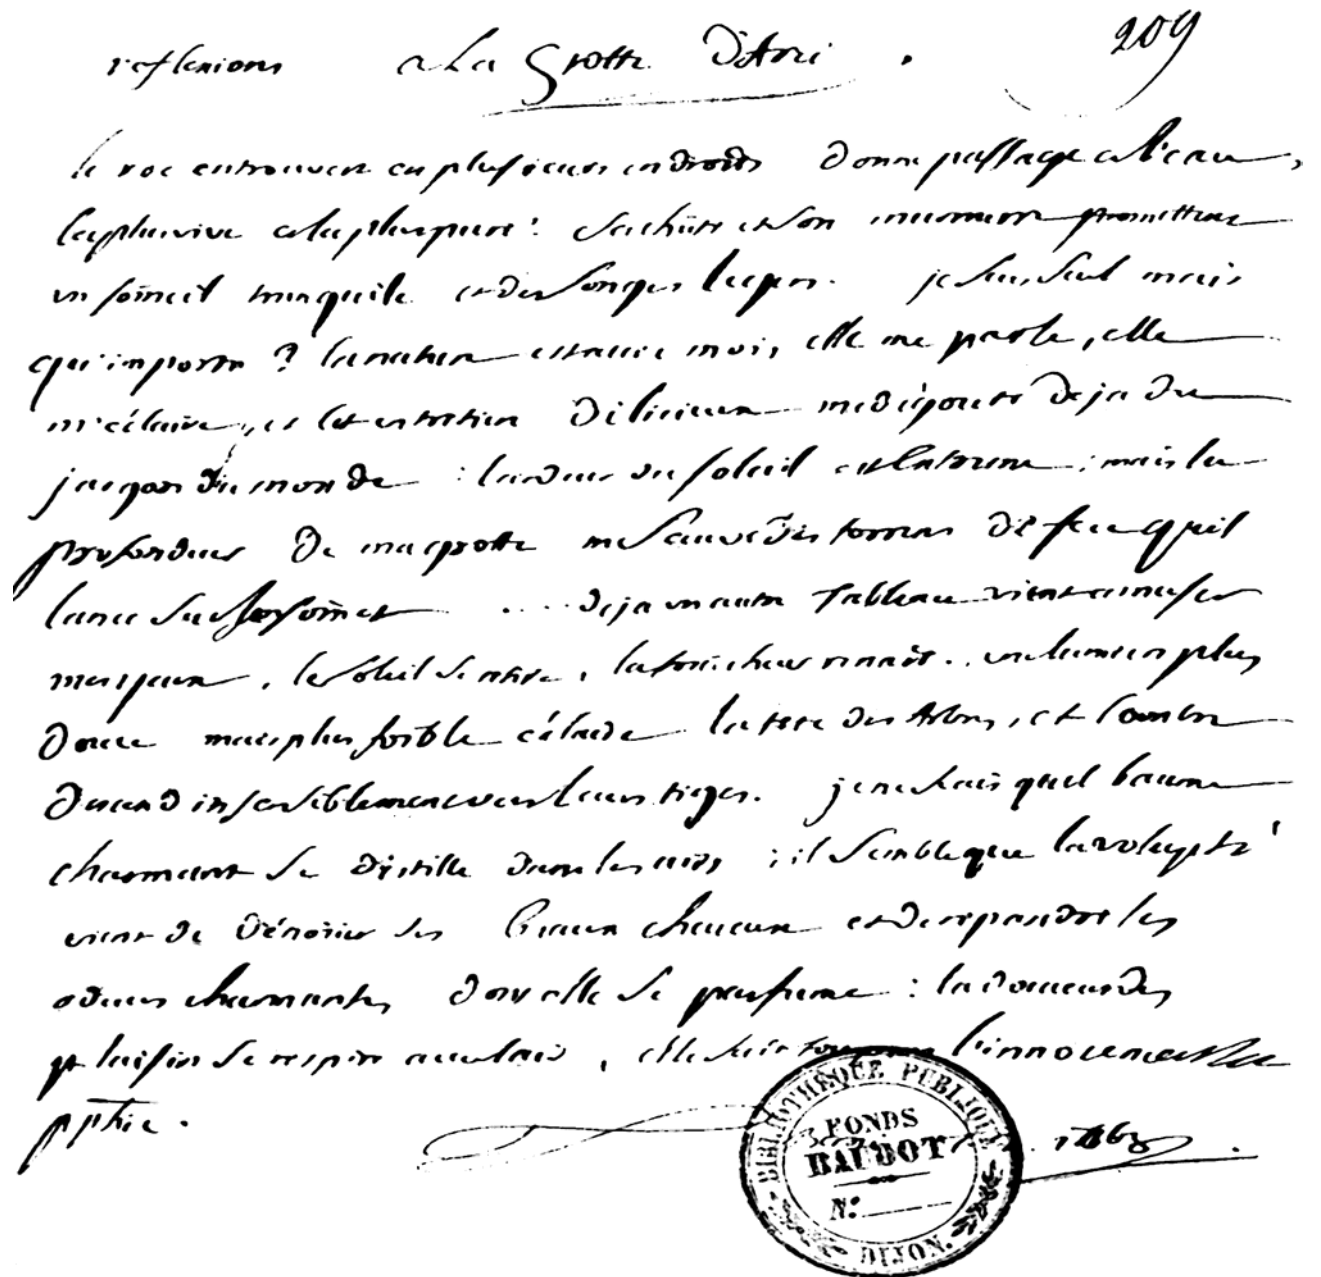 reflexions a La Grotte D'Arci . 209
le roc entrouvert en plusieurs endroits donne passage a l'eau,
la plus vive et la plus pure : sa chûte et son murmure promettent
un som̄eil tranquile et des songes legers. je suis seul mais
qu'importe ? la nature est avec moi, elle me parle, elle
m'éclaire, et cet entretien délicieux me dégoute deja du
jargon du monde : l'ardeur du soleil est extreme ; mais la
profondeur de ma grotte me sauve des torrens de feu qu'il
lance sur son som̄et .... deja un autre tableau vient amuser
mes yeux, le soleil se retire, la fraicheur renait . une lumiere plus
douce mais plus foible éclaire la tete des Arbres, et l'ombre
descend insensiblement vers leurs tiges. je ne sais quel baume
charmant se distille dans les airs ; il semble que la volupté
vient de dénouer ses beaux cheveux et de repandre les
odeurs charmantes dont elle se parfume : la douceur des
plaisirs se respire avec l'air, elle suit toujours l'innocence et la
pphie.
BIBLIOTHÈQUE PUBLIQUE
FONDS
BAUDOT
N:
DIJON.